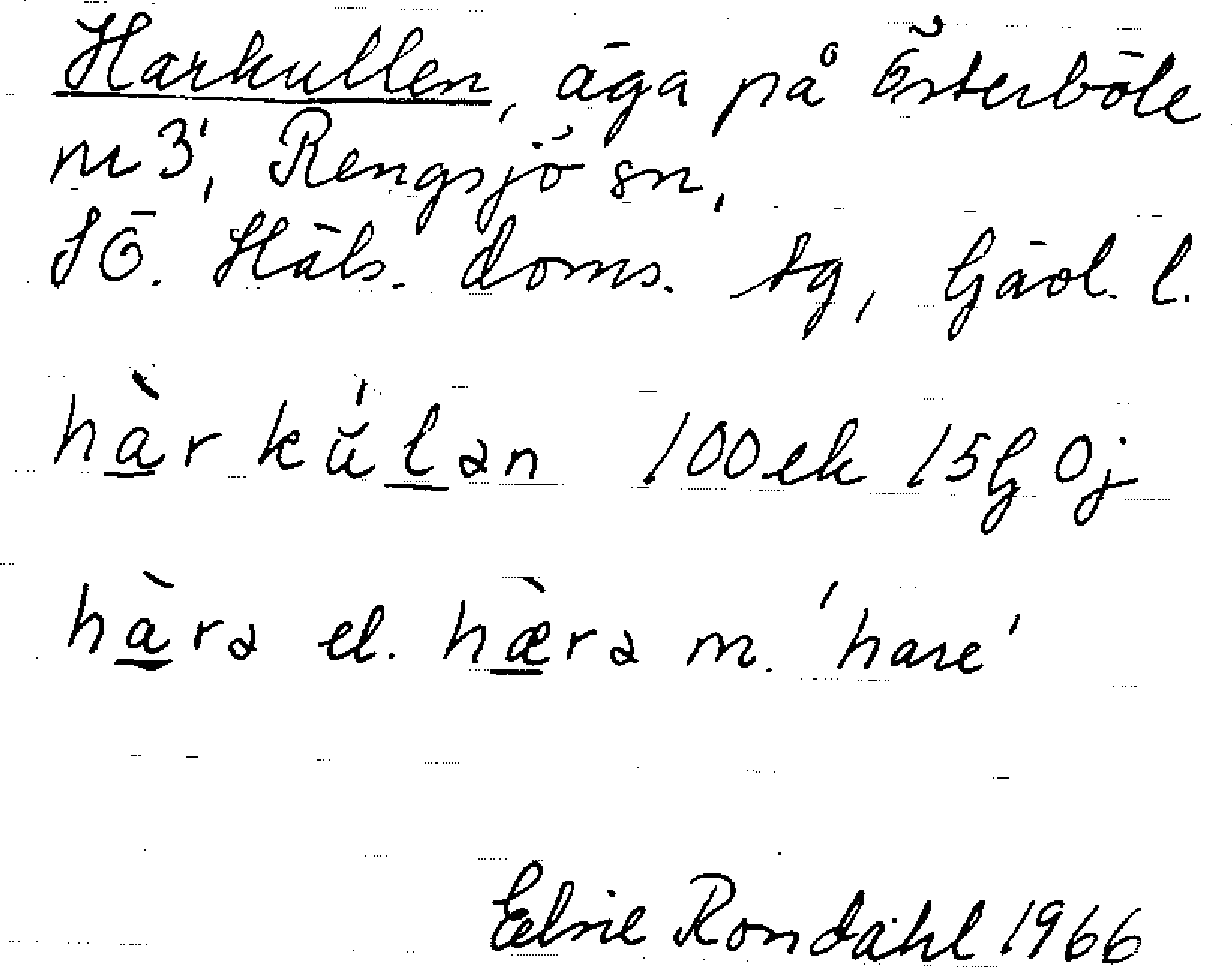 Harkullen, äga på Österböle
nr 3, Rengsjö sn,
SÖ. Häls. doms. tg, Gävl. l.
hàr kúlan 100ek 15G 0j
hàra el. hæ̀ra m. 'hare'
Elsie Rondahl 1966